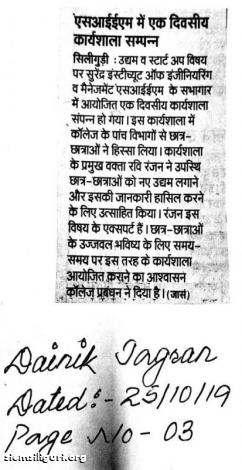 एसआईईएम में एक दिवसीय
कार्यशाला सम्पन्न
सिलीगुड़ी : उद्यम व स्टार्ट अप विषय
पर सुरेंद्र इंस्टीच्यूट ऑफ इंजीनियरिंग
व मैनेजमेंट एसआईईएम के सभागार
में आयोजित एक दिवसीय कार्यशाला
संपन्न हो गया। इस कार्यशाला में
कॉलेज के पांच विभागों से छात्र-
छात्राओं ने हिस्सा लिया। कार्यशाला
के प्रमुख वक्ता रवि रंजन ने उपस्थि
छात्र-छात्राओं को नए उद्यम लगाने
और इसकी जानकारी हासिल करने
के लिए उत्साहित किया। रंजन इस
विषय के एक्सपर्ट हैं। छात्र-छात्राओं
के उज्जवल भविष्य के लिए समय-
समय पर इस तरह के कार्यशाला
आयोजित कराने का आश्वासन
कॉलेज प्रबंधन ने दिया है। (जासं)
Dainik Jagran
Dated:- 25/10/19
Page No- 03
siemsiliguri.org